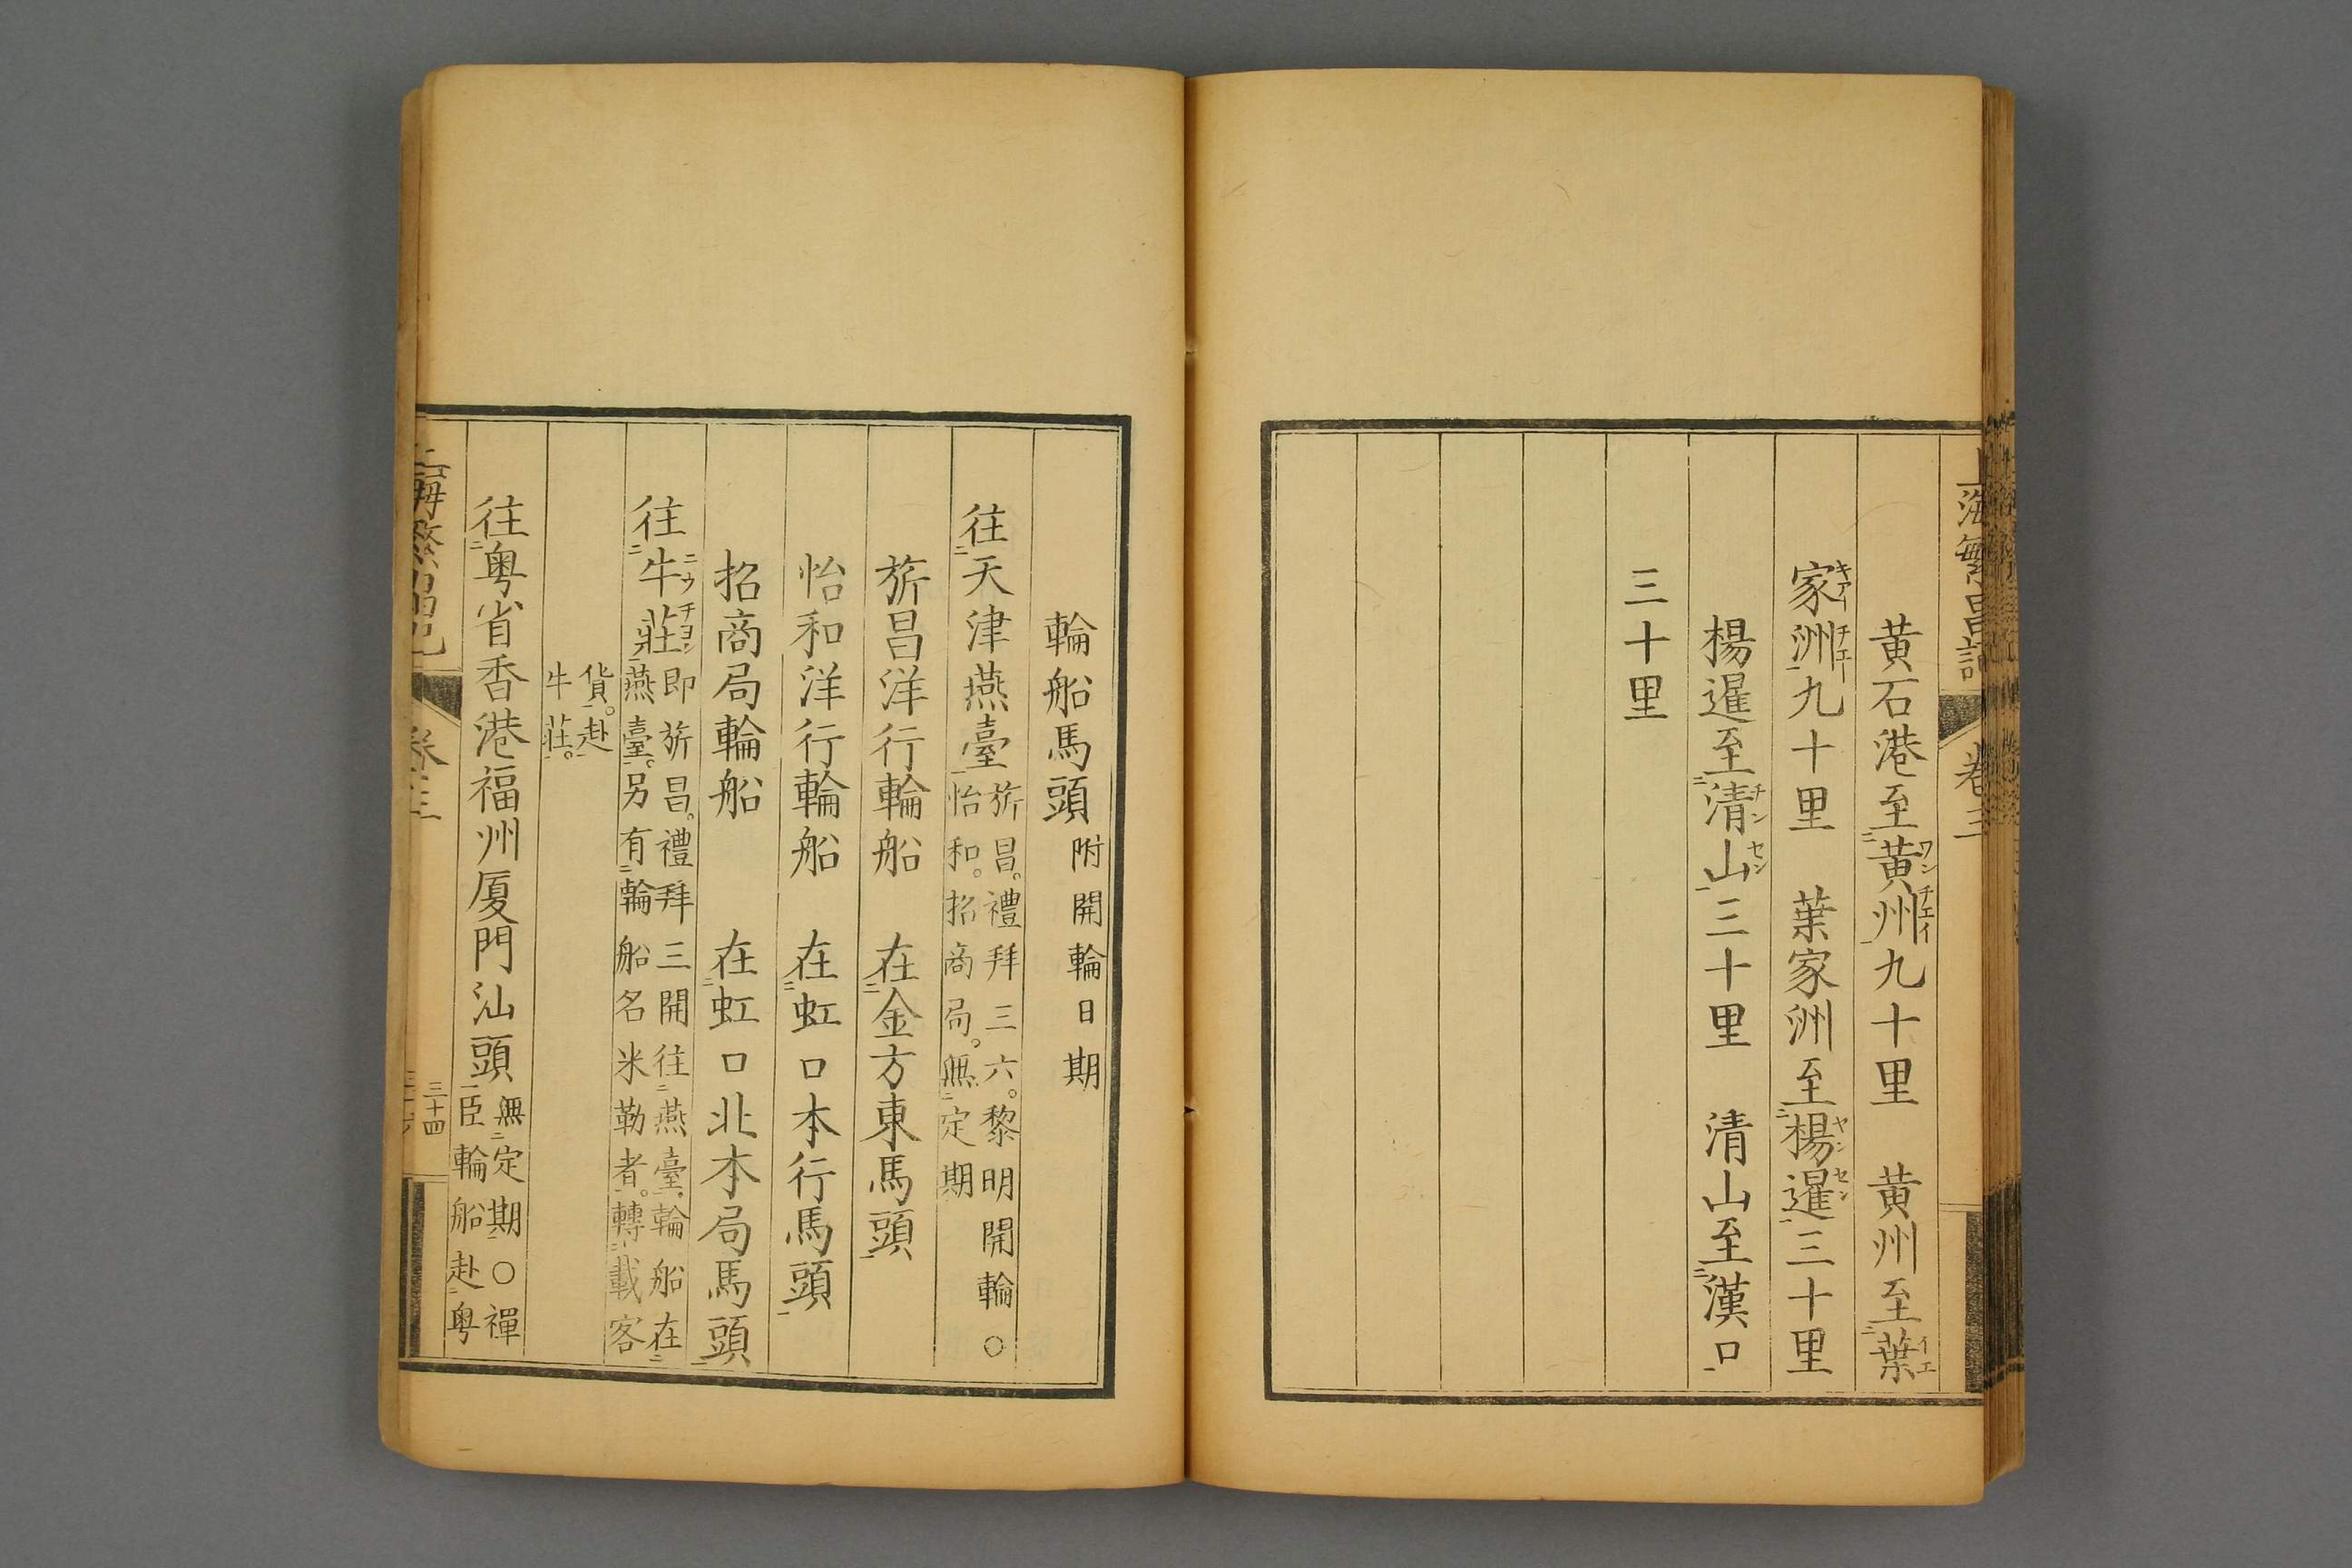 上海繁昌記 卷三
黄石港至黄州九十里 黄州至葉
家洲九十里 葉家洲至楊暹三十里
楊暹至清山三十里 清山至漢口
三十里
輪船馬頭附開輪日期
往天津燕臺旂昌。禮拜三六。黎明開輪○
怡和。招商局。無定期
旂昌洋行輪船 在金方東馬頭
怡和洋行輪船 在虹口本行馬頭
招商局輪船 在虹口北本局馬頭
往牛莊即旂昌。禮拜三開往燕臺、輪船在
燕臺。另有輪船名米勒者。轉載客
貨。赴
牛莊。
往粤省香港福州厦門汕頭無定期○禪
臣輪船赴粤
卷三
三十四